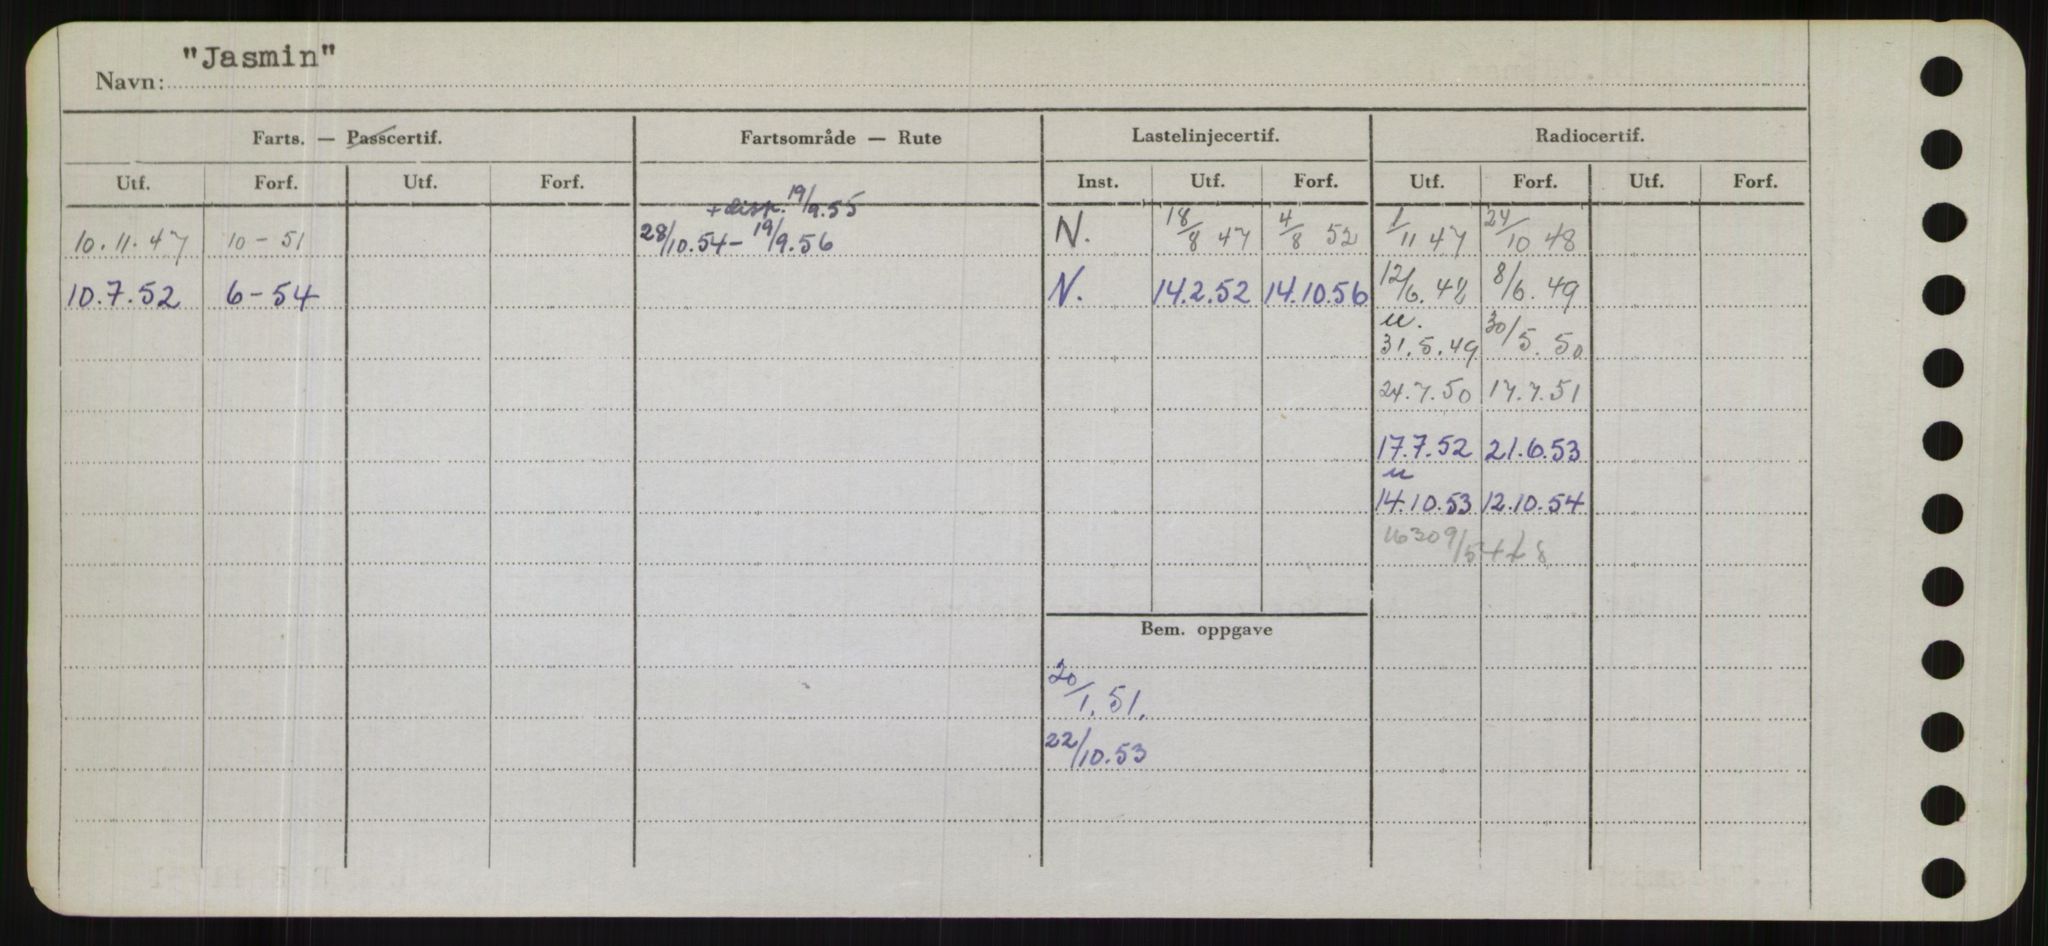 "Jasmin"
Navn:
Farts. — Passcertif. Fartsområde — Rute Lastelinjecertif. Radiocertif.
Utf. Forf. Utf. Forf. Inst. Utf. Forf. Utf. Forf. Utf. Forf.
+ disp. 19/9.55
10.11.47 10-51 28/10.54-19/9.56 N. 18/8 47 4/8 52 1/11 47 24/10 48
10.7.52 6-54 N. 14.2.52 14.10.56 12/6.48 8/6.49
u.
31.5.49 30/5.50
24.7.50 17.7.51
17.7.52 21.6.53
u
14.10.53 12.10.54
Bem. oppgave
20/1.51.
22/10.53